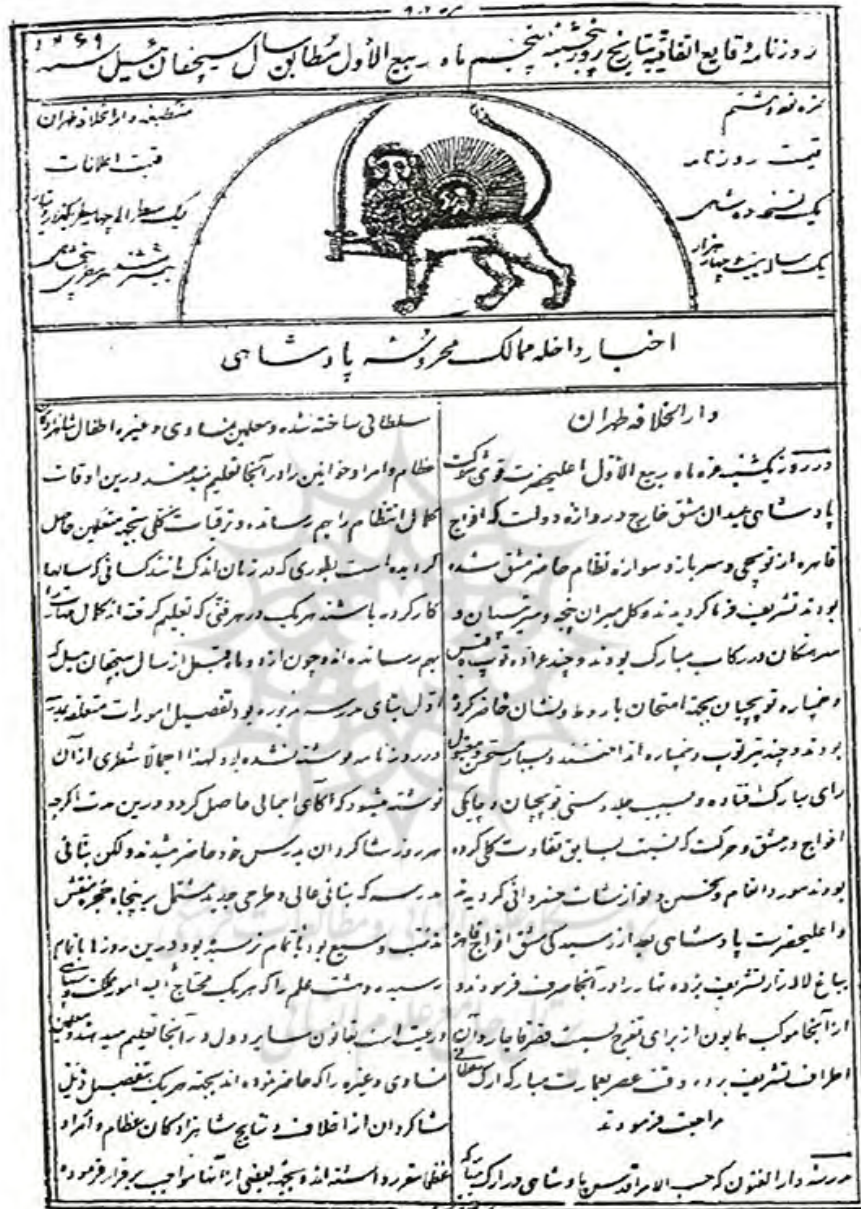 روزنامه وقایع اتفاقیه بتاریخ روز پنجشنبه پنجم ماه ربیع الأول مطابق سال سیچقان ئیل سنه ۱۲۶۹
نمره نود و هشتم
قیمت روزنامه
یک نسخه ده شاهی
یک ساله بیست چهار هزار
منطبعه دارالخلافه طهران
قیمت اعلانات
یک سطر الی چهار سطر یکهزار دینار
بیشتر هر سطری پنجشاهی
اخبار داخله ممالک محروسه پادشاهی
دارالخلافه طهران
در روز یکشنبه غره ماه ربیع الأول اعلیحضرت قوی شوکت
پادشاهی بمیدان مشق خارج دروازه دولت که افواج
قاهره از توپچی و سرباز و سواره نظام حاضر مشق شده
بودند تشریف فرما کردیدند و کل میران پنجه و سرتیپان و
سرهنکان در رکاب مبارک بودند و چند عراده توپ
و خمپاره توپچیان بجهة امتحان باروط و نشان حاضر کرده
بودند و چند تیر توپ و خمپاره انداختند و بسیار مستحسن و مقبول
رای مبارک افتاده و بسبب جلد دستی توپچیان و چابکی
افواج در مشق و حرکت که نسبت بسابق تفاوت کلی کرده
بودند مورد انعام و تحسین و نوازشات خسروانی کردیدند
و اعلیحضرت پادشاهی بعد از رسیدکی مشق افواج قاهره
بباغ لاله زار تشریف برده نهار را در آنجا صرف فرمودند و
از آنجا موکب همایون از برای تفرج بسمت قصر قاجار و آن
اطراف تشریف برده وقت عصر بعمارت مبارکه ارک سلطانی
مراجعت فرمودند
مدرسه دارالفنون که حسب الامر اقدس پادشاهی در ارک مبارکه
سلطانی ساخته شده و معلمین نمساوی و غیره اطفال شاهزادکان
عظام و امرا و خوانین را در آنجا تعلیم میدهند درین اوقات
کمال انتظام را بهم رسانده و ترقیات کلی بجهة متعلمین حاصل
کردیده است بطوری که در زمان اندک مانند کسانی که سالها
کار کرده باشند هریک در هر فنی که تعلیم کرفته اند کمال مهارت
بهم رسانده اند و چون از دو ماه قبل از سال سیچقان ئیل که
اول بنای مدرسه مزبوره بود تفصیل امورات متعلقه بمدرسه
در روزنامه نوشته نشده بود لهذا اجمالا شطری از آن
نوشته میشود که آکاهی اجمالی حاصل کردد درین مدت اکرچه
هر روز شاکردان بدرس خود حاضر میشدند ولکن بنائی
مدرسه که بنائی عالی و طرحی جدید مشتمل بر پنجاه حجره منقش
مذهب وسیع بود باتمام نرسیده بود درین روزها باتمام
رسیده و هشت علم را که هریک محتاج الیه امور مملکت و سپاهی
و رعیت است بقانون سایر دول در آنجا تعلیم میدهند و معلمین
نمساوی و غیره را که حاضر نموده اند بجهة هریک بتفصیل ذیل
شاکردان از اخلاف و نتایج شاهزادکان عظام و امراء
عظام مقرر داشته اند و بجهة بعضی از آنها مواجب برقرار فرموده
پژوهشگاه علوم انسانی و مطالعات فرهنگی
پرتال جامع علوم انسانی